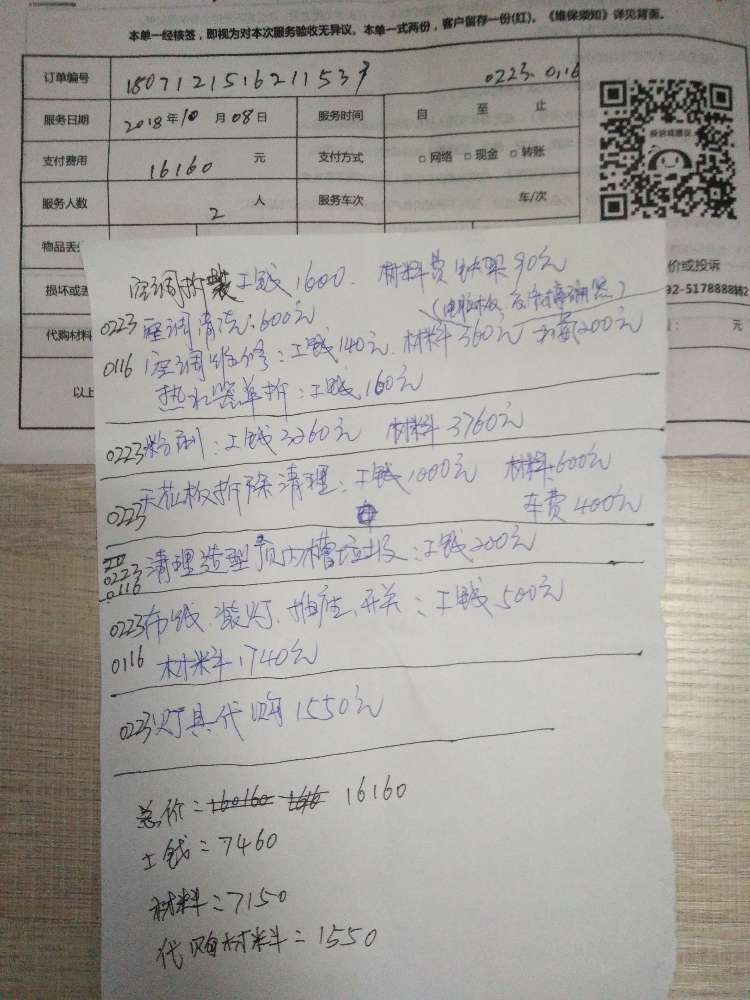 本单一经核签，即视为对本次服务验收无异议。本单一式两份，客户留存一份(红)，《维保须知》详见背面。
订单编号 180712151621153 0223.0116
服务日期 2018年10月08日 服务时间 自 至 止
支付费用 16160 元 支付方式 □网络 □现金 □转账
服务人数 2 人 服务车次 车/次
物品丢
损坏或丢 价或投诉
92-5178888转2
代购材料 ： 元
以上
空调拆装工钱1600. 材料费 铁架90元
0223 空调清洗:600元 (电脑板,
0116 空调维修：工钱140元.材料360元 200元
热水器单拆：工钱160元
0223粉刷：工钱3260元 材料3760元
0223天花板拆除清理：工钱1000元 材料600元
车费400元
0223 清理造型顶内槽垃圾：工钱200元
0116
0223布线、装灯、插座、开关：工钱500元
0116 材料1740元
0223灯具代购1550元
总价=160160 1616 16160
工钱=7460
材料=7150
代购材料=1550